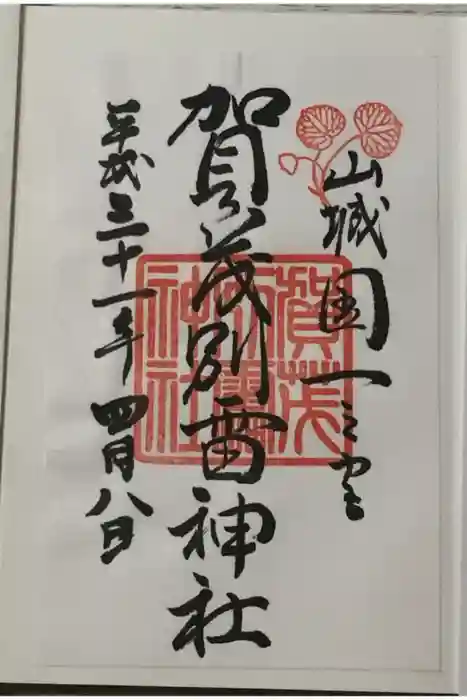 山城国一之宮
賀茂別雷神社
平成三十一年四月八日
賀茂別雷神社